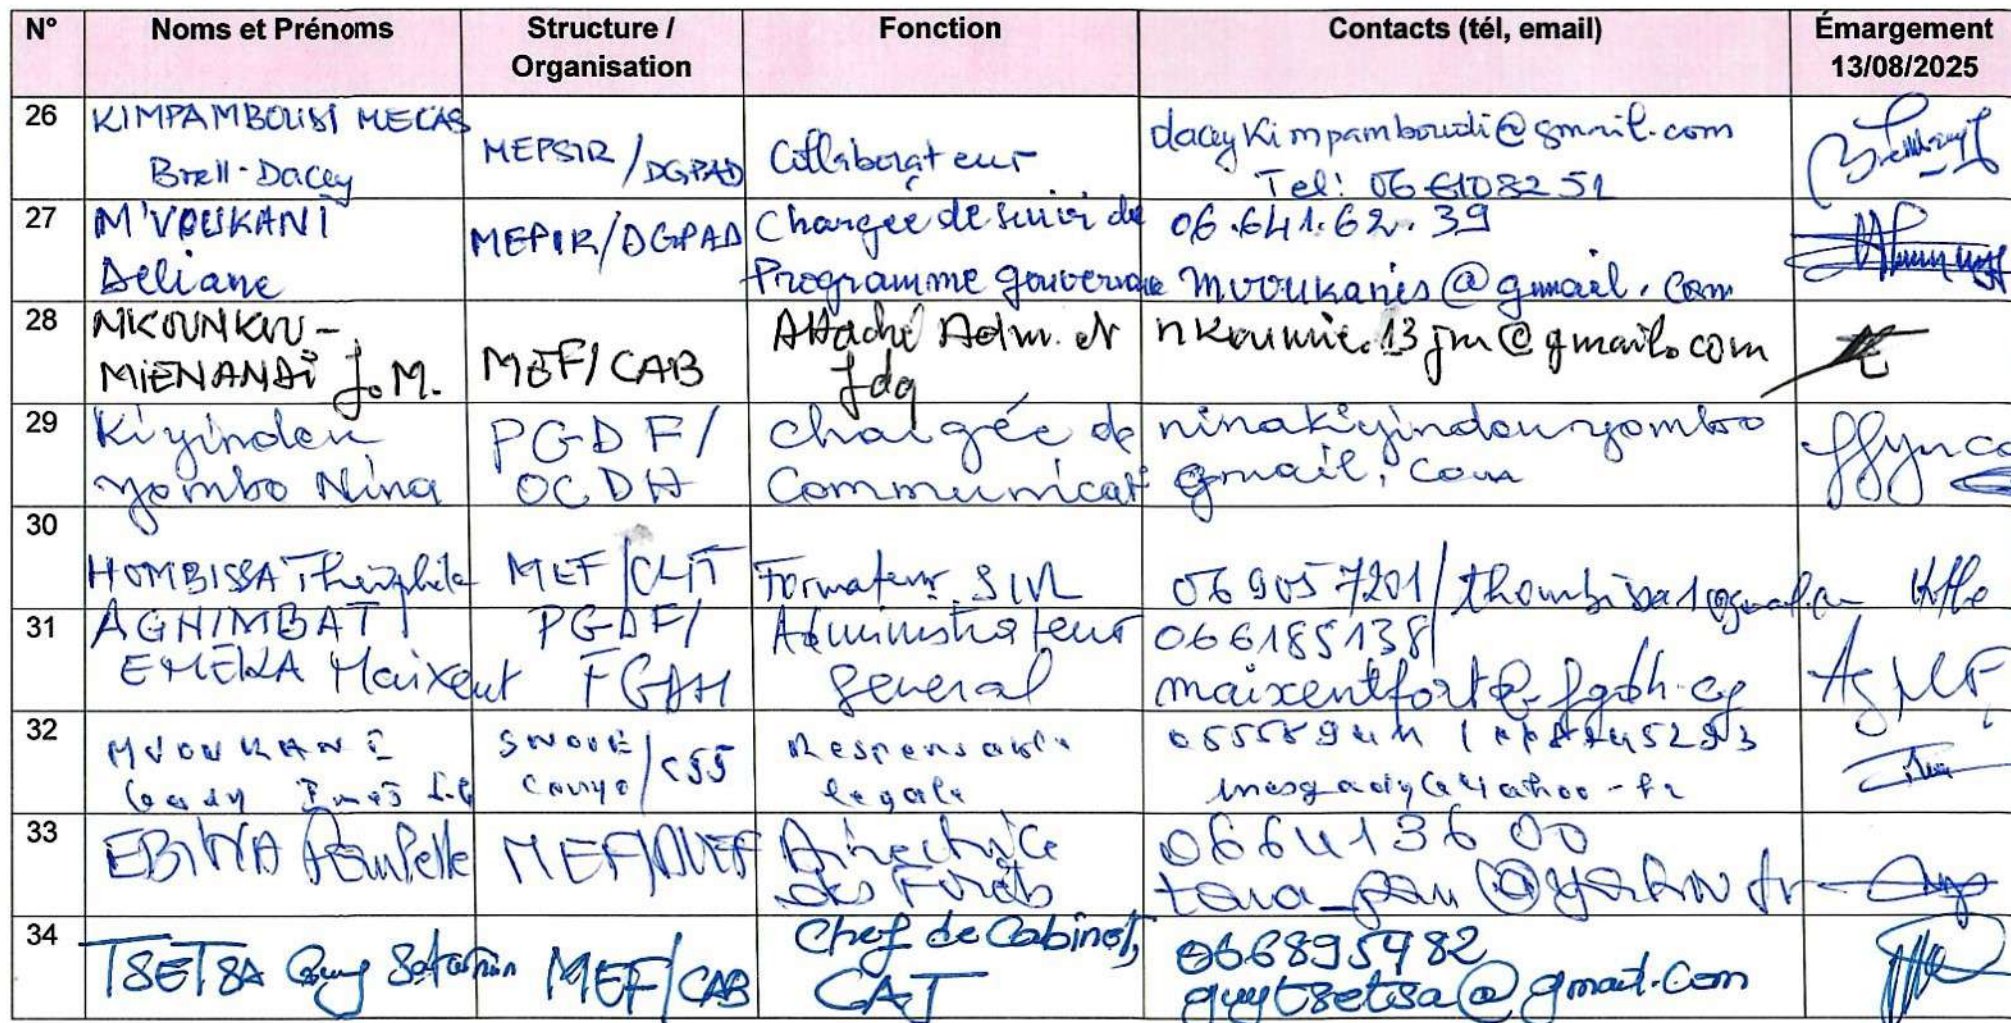 N° Noms et Prénoms Structure / Organisation Fonction Contacts (tél, email) Émargement 13/08/2025
26 KIMPAMBOUDI MECAS
Brell-Dacey
MEPSIR/DGPAD
Collaborateur
daceykimpamboudi@gmail.com
Tel: 06 6108251
27 M'VOUKANI
Deliane
MEPIR/DGPAD
Chargée de suivi de
Programme gouvername
06.641.62.39
mvoukanis@gmail.com
28 NKOUNKOU-
MIENANDI J.M.
MEF/CAB
Attaché Adm. et
Jdq
nkoumie.13jm@gmail.com
29 Kiyindou
yombo Nina
PGDF/
OCDH
chargée de
Communicat
ninakiyindouyombo
gmail.com
30
HOMBISSA Théophile
MEF/CLIT
Formateur SIVL
06 905 7201/thombissa1@
31 AGNIMBAT
EMEKA Maixent
PGDF/
FGDH
Administrateur
General
066185138/
maixentfort@fgdh.cg
32 MVOUKANI
Gady Ines
SNOUE
Congo/CSS
Responsable
légale
inesgady@yahoo.fr
33 EBINA
MEF/
Directrice
des Forêts
066413600
34 TSETSA Guy
MEF/CAB
Chef de Cabinet,
CAJ
066895482
guytsetsa@gmail.com